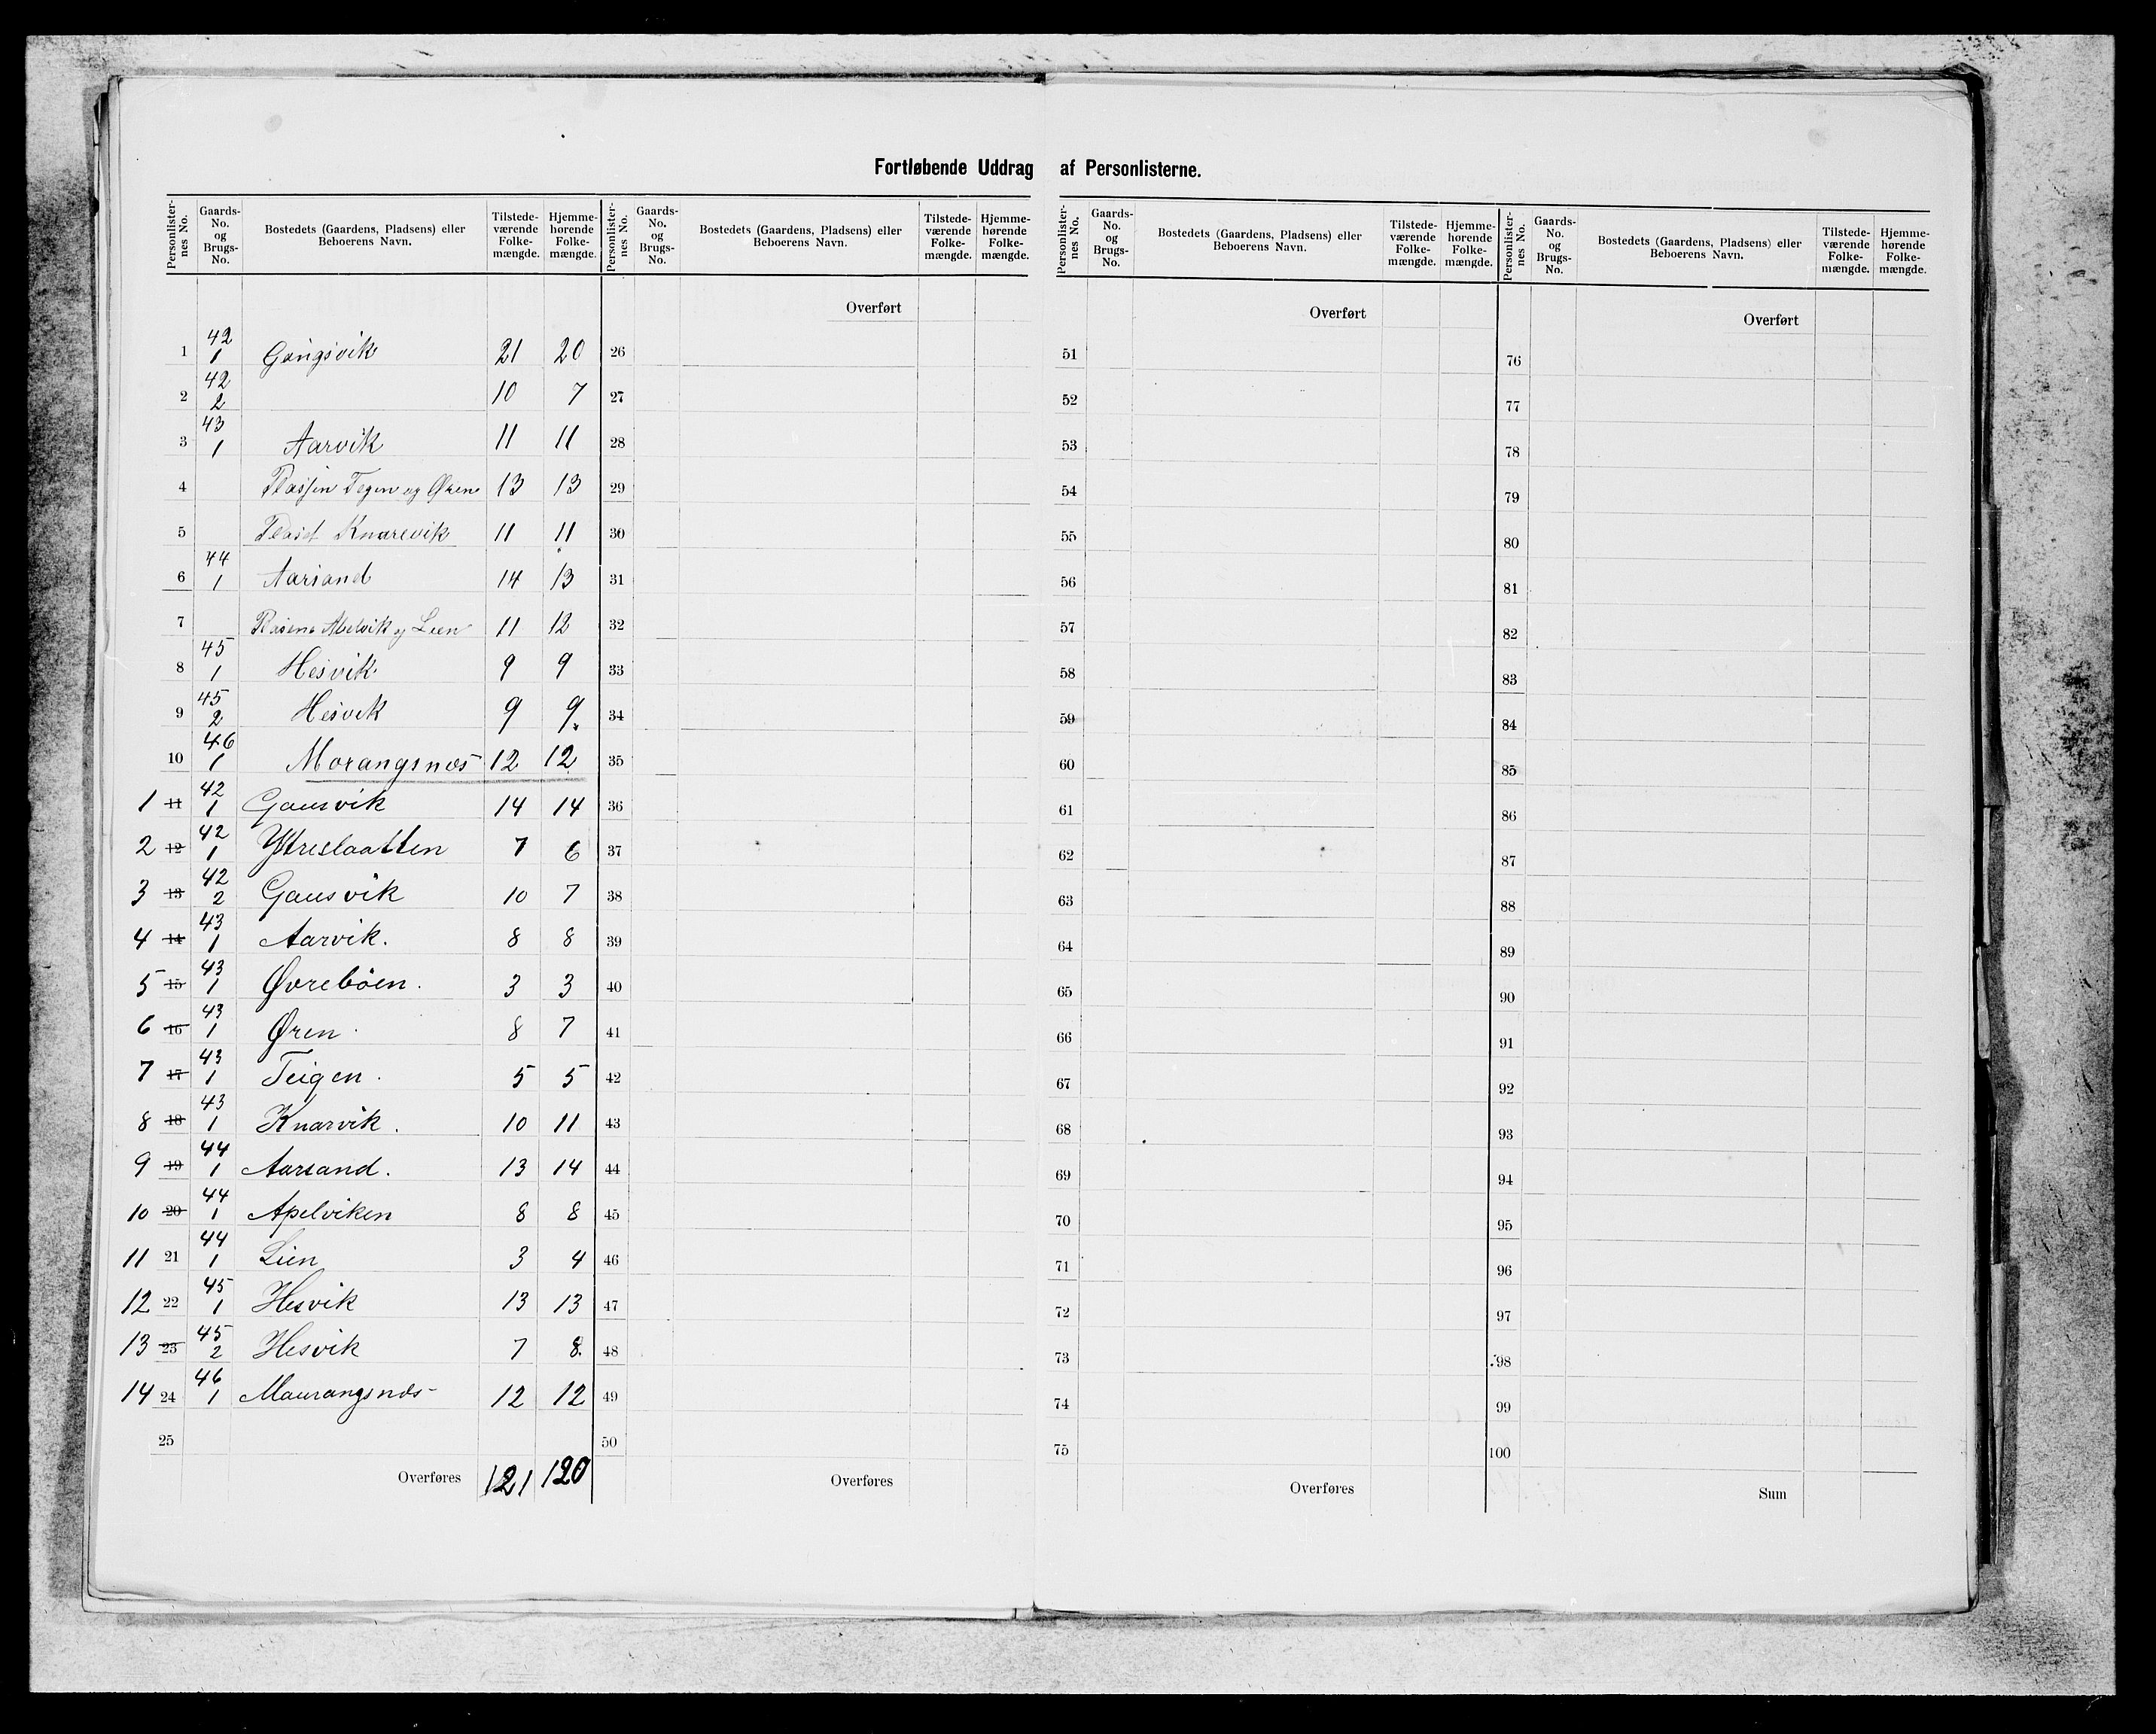 Fortløbende Uddrag af Personlisterne.
Personlisternes No. Gaards-No. og Brugs-No. Bostedets (Gaardens, Pladsens) eller Beboerens Navn. Tilstedeværende Folkemængde. Hjemmehørende Folkemængde.
1 42 1 Gangsvik 21 20
2 42 2 10 7
3 43 1 Aarvik 11 11
4 Tegen og Øren 13 13
5 Knarevik 11 11
6 44 1 Aarsand 14 13
7 og Lien 11 12
8 45 1 Hesvik 9 9
9 45 2 Hesvik 9 9
10 46 1 Morangsnæs 12 12
1 11 42 1 Gausvik 14 14
2 12 42 1 Ytreslaatten 7 6
3 13 42 2 Gausvik 10 7
4 14 43 1 Aarvik. 8 8
5 15 43 1 Øvrebøen. 3 3
6 16 43 1 Øren. 8 7
7 17 43 1 Teigen. 5 5
8 18 43 1 Knarvik. 10 11
9 19 44 1 Aarsand. 13 14
10 20 44 1 Apelviken 8 8
11 21 44 1 Lien 3 4
12 22 45 1 Hesvik 13 13
13 23 45 2 Hesvik 7 8.
14 24 46 1 Maurangsnæs 12 12
25
Overføres 121 120
Personlisternes No. Gaards-No. og Brugs-No. Bostedets (Gaardens, Pladsens) eller Beboerens Navn. Tilstedeværende Folkemængde. Hjemmehørende Folkemængde.
Overført
26
27
28
29
30
31
32
33
34
35
36
37
38
39
40
41
42
43
44
45
46
47
48
49
50
Overføres
Personlisternes No. Gaards-No. og Brugs-No. Bostedets (Gaardens, Pladsens) eller Beboerens Navn. Tilstedeværende Folkemængde. Hjemmehørende Folkemængde.
Overført
51
52
53
54
55
56
57
58
59
60
61
62
63
64
65
66
67
68
69
70
71
72
73
74
75
Overføres
Personlisternes No. Gaards-No. og Brugs-No. Bostedets (Gaardens, Pladsens) eller Beboerens Navn. Tilstedeværende Folkemængde. Hjemmehørende Folkemængde.
Overført
76
77
78
79
80
81
82
83
84
85
86
87
88
89
90
91
92
93
94
95
96
97
98
99
100
Sum